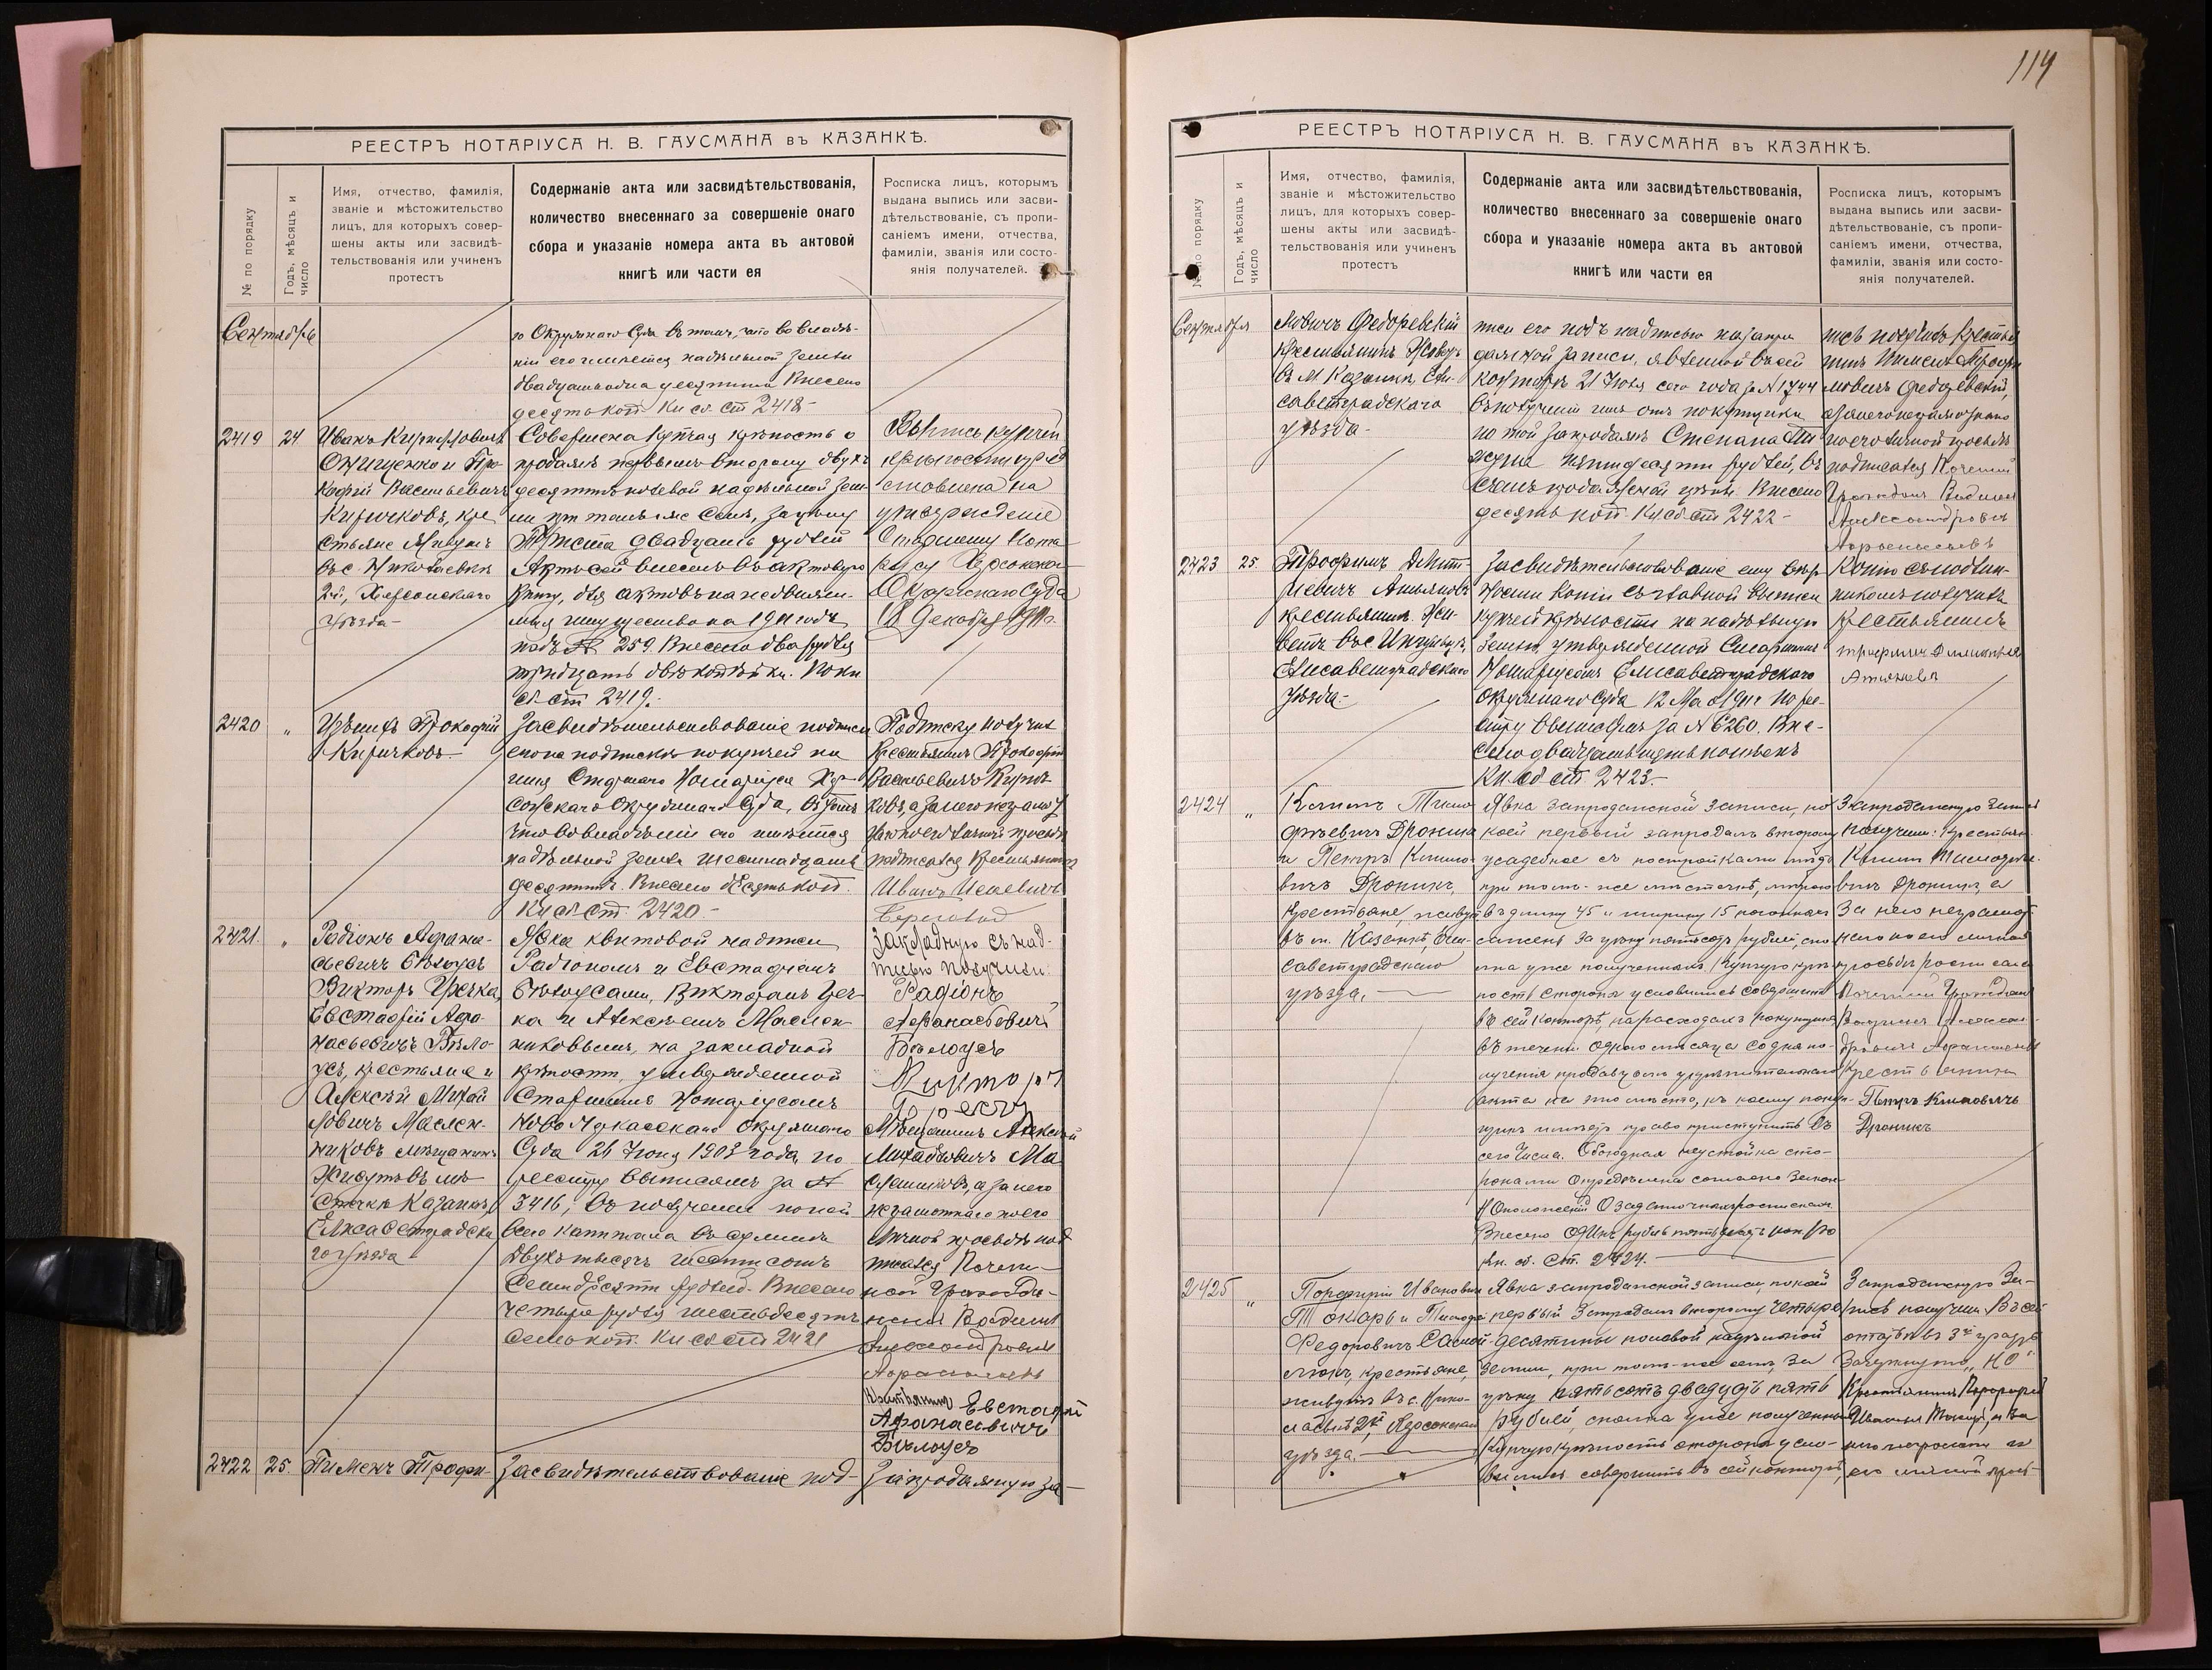 РЕЕСТРЪ НОТАРІУСА Н. В. ГАУСМАНА въ КАЗАНКѢ.
№ по порядку
Годъ, мѣсяцъ и
число
Имя, отчество, фамилія,
званіе и мѣстожительство
лицъ, для которыхъ совер-
шены акты или засвидѣ-
тельствованія или учиненъ
протестъ
Содержаніе акта или засвидѣтельствованія,
количество внесеннаго за совершеніе онаго
сбора и указаніе номера акта въ актовой
книгѣ или части ея
Росписка лицъ, которымъ
выдана выпись или засви-
дѣтельствованіе, съ пропи-
саніемъ имени, отчества,
фамиліи, званія или состо-
янія получателей.
Сентябрь
го Окружнаго Суда въ томъ, что во владѣ-
ніи его имѣется надѣльной земли
двадцать одна десятина Внесено
десять коп. Кн сб. ст 2418-
2419
24
Иванъ Кирилловичъ
Онищенко и Про-
кофій Васильевичъ
Киричковъ, кре
стьяне живутъ
въ с. Николаевкѣ
2й, Херсонскаго
уѣзда-
Совершена купчая крѣпость о
продажѣ первымъ второму двухъ
десятинъ полевой надѣльной зем-
ли при томъ же селѣ, за цѣну
Триста двадцать рублей
Актъ сей внесенъ въ актовую
книгу, для актовъ на недвижи-
мыя имущества на 1911 годъ
подъ № 259. Внесено два рубля
тридцать двѣ копѣйки. По кн
сб. ст 2419.
Выпись купчей
крѣпости пред
ставлена на
утвержденіе
Старшему Нота
ріусу Херсонскаго
Окружнаго Суда
18 Декабря
2420
"
Прокофій
Киричковъ.
Засвидѣтельствованіе подписи
его на подпискѣ по купчей на
имя Старшаго Нотаріуса Хер-
сонскаго Окружнаго Суда, въ томъ
что во владѣніи его имѣется
надѣльной земли шестнадцать
десятинъ. Внесено десять коп.
Кн сб ст. 2420-
Подписку получил
Крестьянинъ Прокофій
Васильевичъ Кирич-
ковъ, а за него неграмот
наго по его личной просьбѣ
подписался Крестьянинъ
Иванъ
2421.
"
Радіонъ Афана-
сьевичъ Бѣлоусъ
Викторъ Гречка,
Евстафій Афа-
насьевичъ Бѣло-
усъ, крестьяне и
Алексѣй Михай
ловичъ Маслен-
никовъ мѣщанинъ
Живутъ въ мѣ-
стечкѣ Казанкѣ,
Елисаветградска
го уѣзда
Явка квитовой надписи
Радіономъ и Евстафіемъ
Бѣлоусами, Викторомъ Греч-
ка и Алексѣемъ Маслен-
никовымъ, на закладной
крѣпости, утвержденной
Старшимъ Нотаріусомъ
Ново Черкасскаго Окружнаго
Суда 26 Іюня 1908 года, по
реестру выписямъ за №
3416, въ полученіи по ней
всего капитала въ суммѣ
двухъ тысячъ шести сотъ
семидесяти рублей. Внесено
четыре рубля шестьдесятъ
семь коп. Кн сб ст 2421
Закладную съ над-
писью получили:
Радіонъ
Афанасьевичъ
Бѣлоусъ
Викторъ
Мѣщанинъ Алексѣй
Михайловичъ Ма
сленниковъ, а за него
неграмотнаго по его
личной просьбѣ под
писался Почет-
ной Гражда-
нинъ Вадимъ
Александровичъ
Крестьянинъ Евстафій
Афанасьевичъ
Бѣлоусъ
2422
25.
Пименъ Трофи-
Засвидѣтельствованіе под-
Запродажную за-
114
РЕЕСТРЪ НОТАРІУСА Н. В. ГАУСМАНА въ КАЗАНКѢ.
№ по порядку
Годъ, мѣсяцъ и
число
Имя, отчество, фамилія,
званіе и мѣстожительство
лицъ, для которыхъ совер-
шены акты или засвидѣ-
тельствованія или учиненъ
протестъ
Содержаніе акта или засвидѣтельствованія,
количество внесеннаго за совершеніе онаго
сбора и указаніе номера акта въ актовой
книгѣ или части ея
Росписка лицъ, которымъ
выдана выпись или засви-
дѣтельствованіе, съ пропи-
саніемъ имени, отчества,
фамиліи, званія или состо-
янія получателей.
Сентября
мовичъ Федоревскій
крестьянинъ Живетъ
въ М Казанкѣ, Ели-
саветградскаго
уѣзда-
писи его подъ надписью на запро
дажной записи, явленной въ сей
конторѣ 21 Іюля сего года за № 1744
въ полученіи имъ отъ покупщика
по той запродажѣ Степана
пятидесяти рублей, въ
счетъ продажной цѣны. Внесено
десять коп. Кн сб ст 2422-
пись получилъ Крестья
нинъ Пименъ Трофи
мовичъ Федоревскій,
а за него неграмотнаго
по его личной просьбѣ
подписался Почетный
Гражданинъ Вадимъ
Александровичъ
2423
25.
Трофимъ Дмит-
ріевичъ
крестьянинъ Жи-
ветъ въ с.
Елисаветградскаго
уѣзда-
Засвидѣтельствованіе ему вѣр
ности копіи съ главной выписи
купчей крѣпости на надѣльную
землю, утвержденной Старшимъ
Нотаріусомъ Елисаветградскаго
Окружнаго Суда 12 Мая 1911 по ре-
естру выписямъ за № 6260. Вне-
сено двадцать пять копѣекъ
Кн. сб. ст. 2423.-
Копію съ подлин-
никомъ получилъ
Крестьянинъ
2424
"
Климъ Тимо
фѣевичъ Дроникъ
и Петръ Климо-
вичъ Дроникъ,
крестьяне, живутъ
въ м. Казанкѣ, Ели-
саветградскаго
уѣзда.
Явка запродажной записи, по
коей первый запродалъ второму
усадебное съ постройками мѣсто
при томъ-же мѣстечкѣ, мѣрою
въ длину 45 и ширину 15 погонныхъ
сажень за цѣну пятьсотъ рублей, спо
лна уже полученныхъ. Купчую крѣ-
пость стороны условились совершить
въ сей конторѣ, на расходахъ покупщика
въ теченіи одного мѣсяца со дня по-
лученія продавцемъ укрѣпительнаго
акта на это мѣсто, къ коему покуп-
щикъ имѣетъ право приступить съ
сего числа. Обоюдная неустойка сто-
ронами опредѣлена согласно закон
Внесено одинъ рубль пятьдесятъ коп. По
кн. сб. ст. 2424.
Запродажную запись
получили: Крестьян.
Климъ Тимофѣе-
вичъ Дроникъ, а
за него неграмот
наго по его личной
просьбѣ росписался
Почетный Гражданинъ
Вадимъ Алексан-
дровичъ
Крестьянинъ
Петръ Климовичъ
Дроникъ
2425
"
Порфирій Ивановичъ
Токарь и Тимофѣй
Федоровичъ
крестьяне,
живутъ въ с. Нико-
лаевкѣ 2й, Херсонскаго
уѣзда.
Явка запродажной записи, по коей
первый запродалъ второму четыре
десятины полевой надѣльной
земли, при томъ-же селѣ, за
цѣну пятьсотъ двадцать пять
рублей, сполна уже полученныхъ
Купчую крѣпость стороны усло-
вились совершить въ сей конторѣ,
Запродажную за-
пись получили. Въ сей
статьѣ въ 3й графѣ
зачеркнуто „но"
Крестьянинъ Порфирій
Ивановъ Токарь, а за
него неграмотнаго
его личной прось-